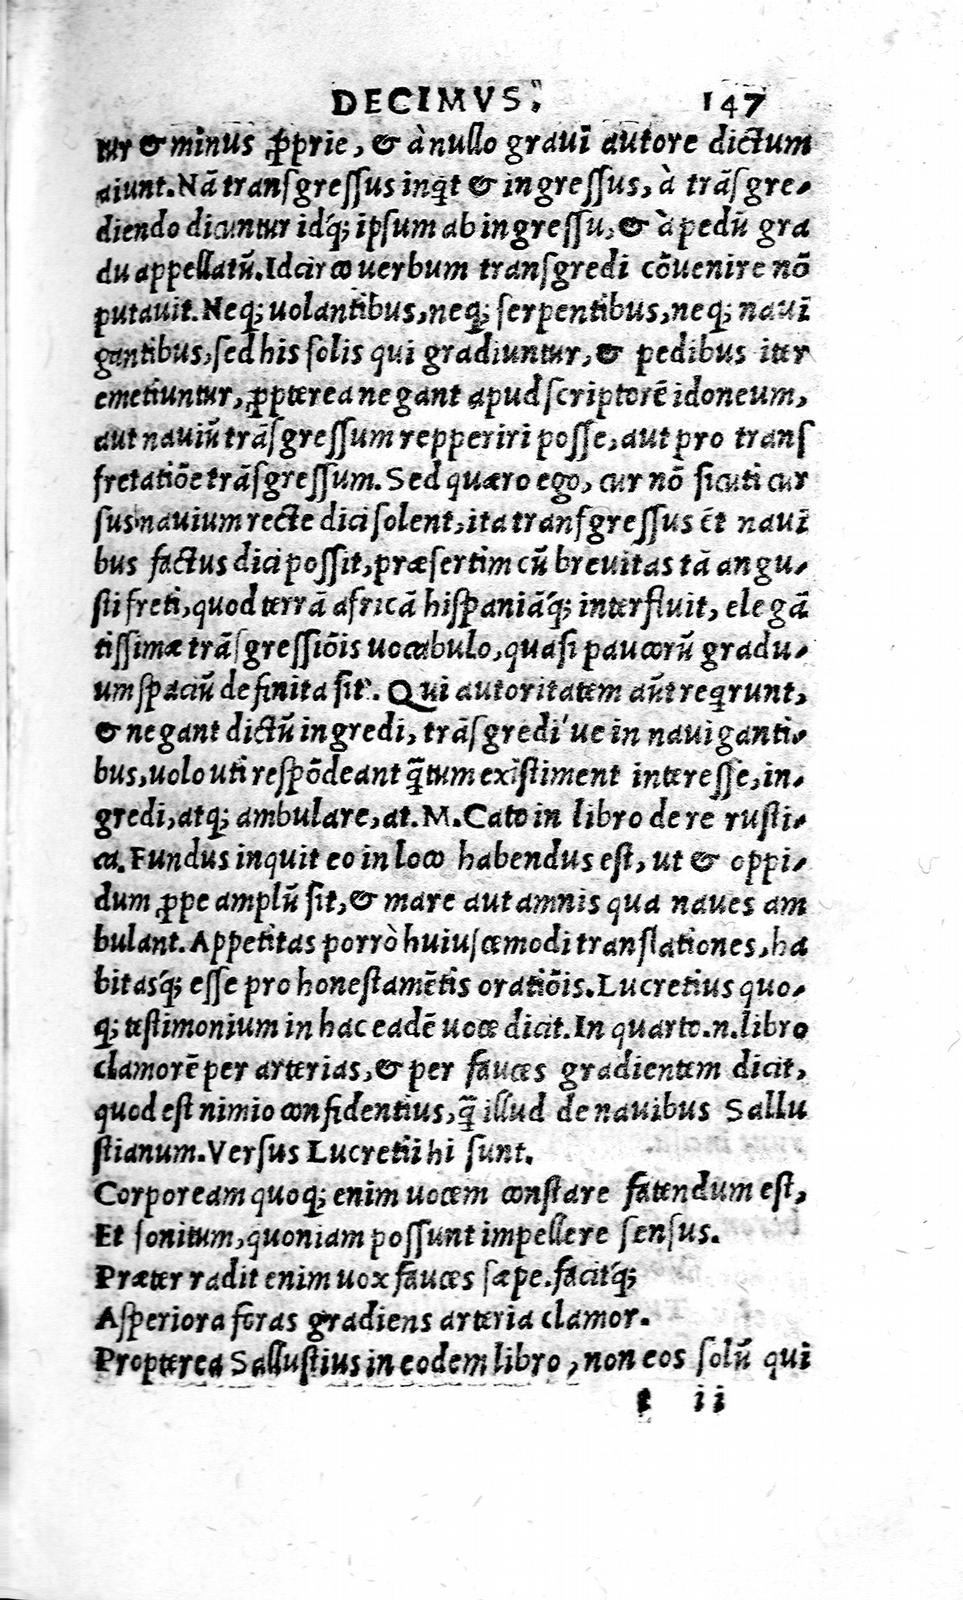 DECIMVS. 147
tur & minus ꝓprie, & à nullo graui autore dictum
aiunt. Nã transgressus inqt & ingressus, à trãsgre-
diendo dicuntur idq́; ipsum ab ingressu, & à pedũ gra
du appellatũ. Idcirco uerbum transgredi cõuenire nõ
putauit. Neq; uolantibus, neq; serpentibus, neq; naui
gantibus, sed his solis qui gradiuntur, & pedibus iter
emetiuntur, ꝓpterea negant apud scriptorẽ idoneum,
aut nauiũ trãsgressum repperiri posse, aut pro trans
fretatiõe trãsgressum. Sed quæro ego, cur nõ sicuti cur
sus nauium recte dici solent, ita transgressus ẽt naui
bus factus dici possit, præsertim cũ breuitas tã angu-
sti freti, quod terrã africã hispaniãq́; interfluit, elegã
tissimæ trãsgressiõis uocabulo, quasi paucorũ gradu-
um spaciũ definita sit. Qui autoritatem aũt reqrunt,
& negant dictũ ingredi, trãsgredi'ue in nauiganti-
bus, uolo uti respõdeant q̃tum existiment interesse, in-
gredi, atq; ambulare, at. M. Cato in libro de re rusti-
ca. Fundus inquit eo in loco habendus est, ut & oppi-
dum ꝓpe amplũ sit, & mare aut amnis qua naues am
bulant. Appetitas porrò huiuscemodi translationes, ha
bitasq́; esse pro honestamẽtis oratiõis. Lucretius quo-
q; testimonium in hac eadẽ uoce dicit. In quarto.n.libro
clamorẽ per arterias, & per fauces gradientem dicit,
quod est nimio confidentius, q̃ illud de nauibus Sallu
stianum. Versus Lucretii hi sunt.
Corpoream quoq; enim uocem constare fatendum est,
Et sonitum, quoniam possunt impellere sensus.
Præter radit enim uox fauces sæpe. facitq́;
Asperiora foras gradiens arteria clamor.
Propterea Sallustius in eodem libro, non eos solũ qui
ii